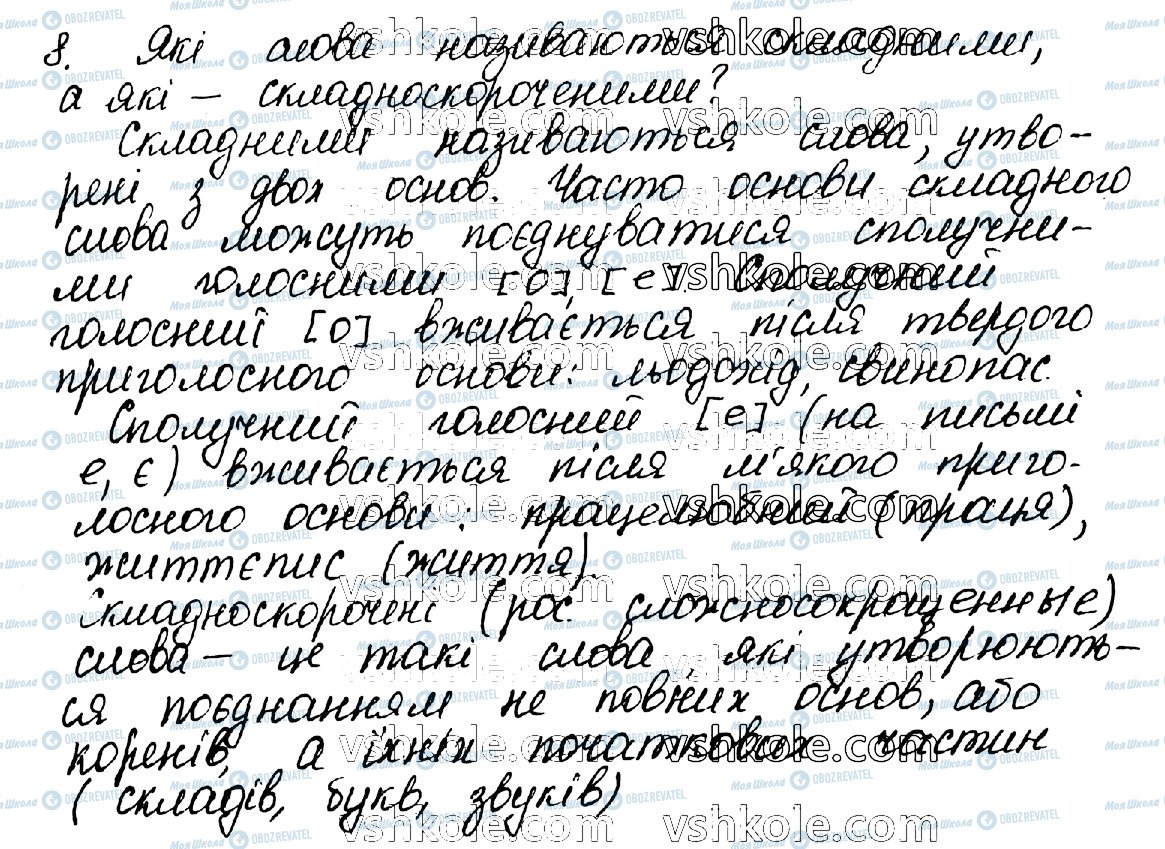 8. Які слова називаються складними,
а які – складноскороченими?
Складними називаються слова, утво-
рені з двох основ. Часто основи складного
слова можуть поєднуватися сполучни-
ми голосними [о], [е]. Сполучний
голосний [о] вживається після твердого
приголосного основи: льодохід, свинопас.
Сполучний голосний [е] (на письмі
е, є) вживається після м'якого приго-
лосного основи: працелюбний (праця),
життєпис (життя).
Складноскорочені (рос. сложносокращенные)
слова – це такі слова, які утворюють-
ся поєднанням не повних основ, або
коренів, а їхніх початкових частин
(складів, букв, звуків)